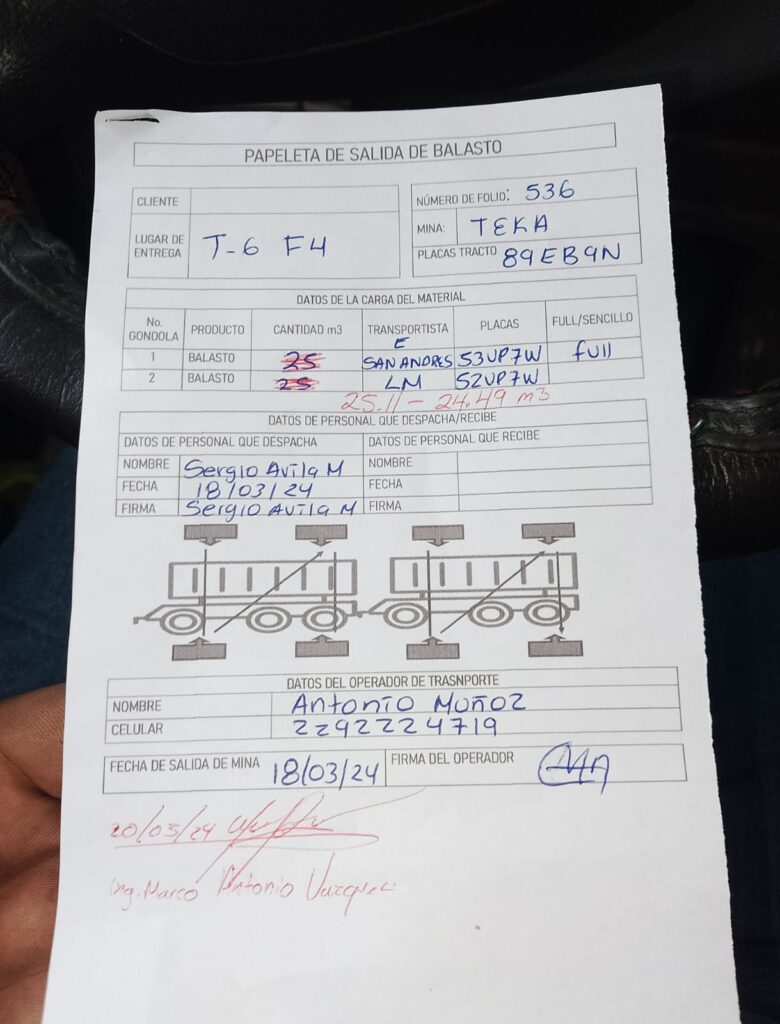 PAPELETA DE SALIDA DE BALASTO
CLIENTE
LUGAR DE ENTREGA T-6 F4
NÚMERO DE FOLIO: 536
MINA: TEKA
PLACAS TRACTO 89EB9N
DATOS DE LA CARGA DEL MATERIAL
No. GONDOLA PRODUCTO CANTIDAD m3 TRANSPORTISTA PLACAS FULL/SENCILLO
1 BALASTO 25 E SAN ANDRES 53UP7W full
2 BALASTO 25 LM 52UP7W
25.11 - 24.49 m3
DATOS DE PERSONAL QUE DESPACHA/RECIBE
DATOS DE PERSONAL QUE DESPACHA DATOS DE PERSONAL QUE RECIBE
NOMBRE Sergio Avila M NOMBRE
FECHA 18/03/24 FECHA
FIRMA Sergio Avila M FIRMA
DATOS DEL OPERADOR DE TRASNPORTE
NOMBRE Antonio Muñoz
CELULAR 2292224719
FECHA DE SALIDA DE MINA 18/03/24 FIRMA DEL OPERADOR
20/03/24
Ing. Marco Antonio Vazquez